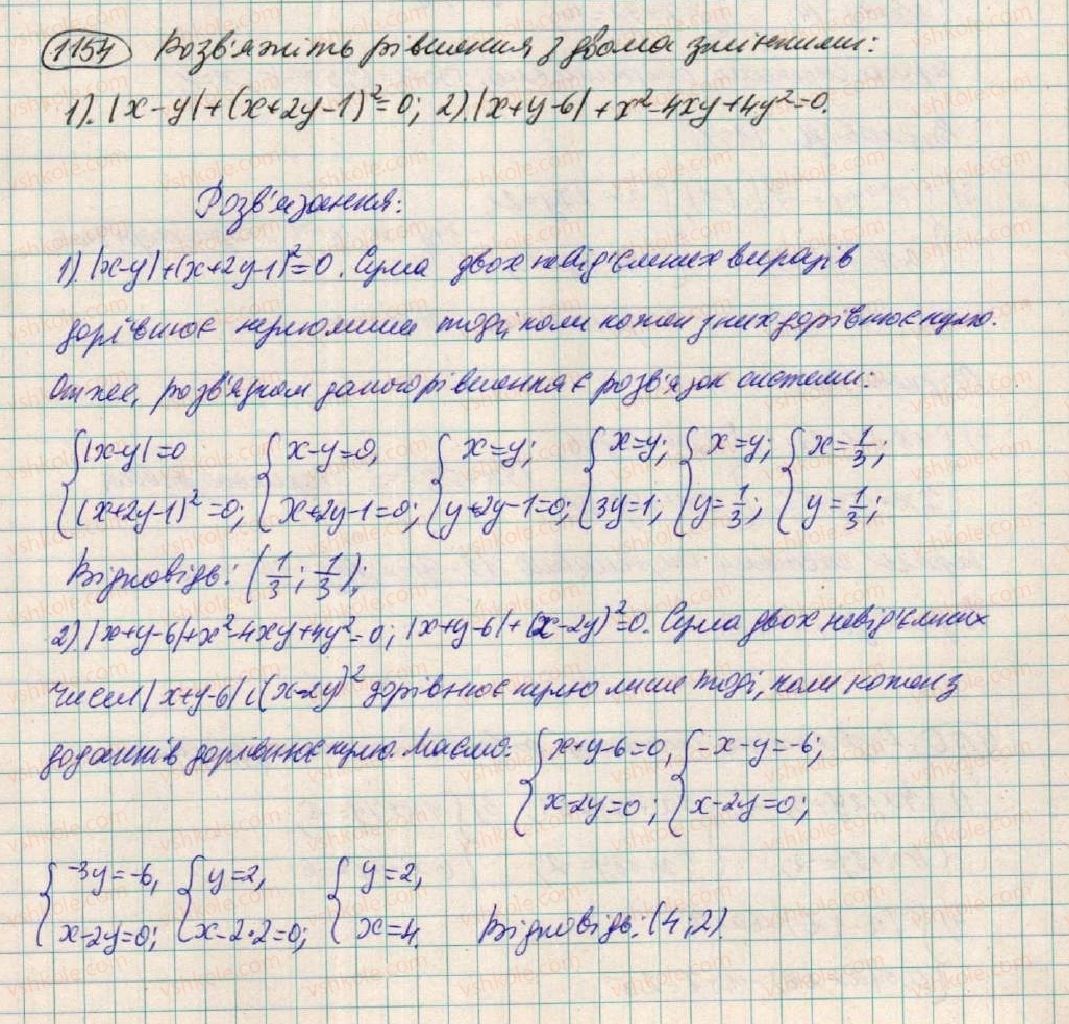 1154 Розв'яжіть рівняння з двома змінними:
1). |x-y|+(x+2y-1)²=0; 2).|x+y-6|+x²-4xy+4y²=0.
Розв'язання:
1). |x-y|+(x+2y-1)²=0. Сума двох невід'ємних виразів
дорівнює нулю лише тоді, коли кожен з них дорівнює нулю.
Отже, розв'язком даного рівняння є розв'язок системи:
{|x-y|=0 { x-y=0, { x=y; { x=y; { x=y; { x=1/3;
{(x+2y-1)²=0; { x+2y-1=0; { y+2y-1=0; { 3y=1; { y=1/3; { y=1/3;
Відповідь: (1/3; 1/3);
2) |x+y-6|+x²-4xy+4y²=0; |x+y-6|+(x-2y)²=0. Сума двох невід'ємних
чисел |x+y-6| і (x-2y)² дорівнює нулю лише тоді, коли кожен з
доданків дорівнює нулю. Маємо: { x+y-6=0, { -x-y=-6;
{ x-2y=0; { x-2y=0;
{ -3y=-6, { y=2, { y=2,
{ x-2y=0; { x-2•2=0; { x=4. Відповідь: (4;2).